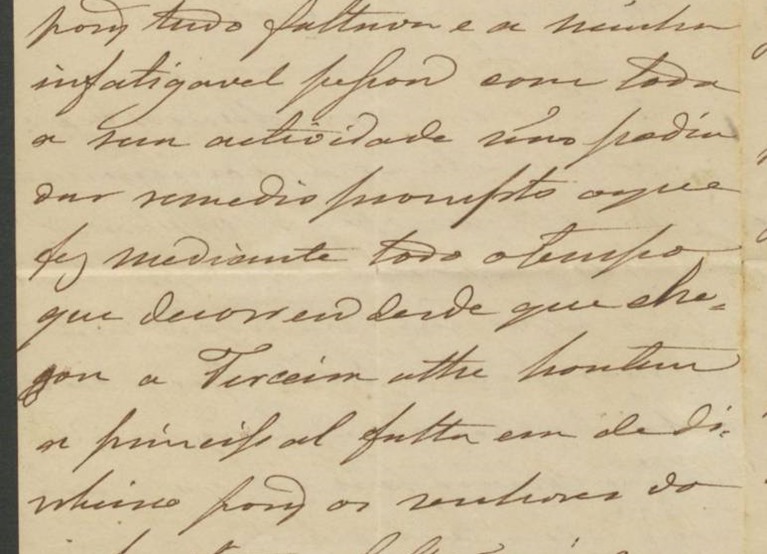 porq tudo faltava e a minha
infatigavel pessoa com toda
a sua actividade não podia
dar remedio prompto o que
fez mediante todo o tempo
que decorreu desde que che=
gou a Terceira athe hontem
a principal falta era de di=
nheiro porq os senhores do